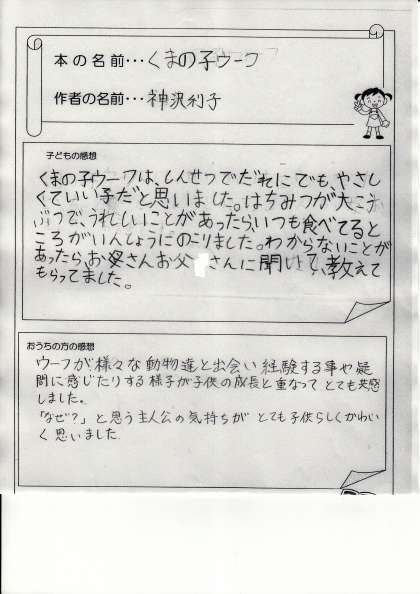 本の名前･･･くまの子ウーフ
作者の名前･･･神沢利子
子どもの感想
くまの子ウーフは、しんせつでだれにでも、やさし
くていい子だと思いました。はちみつが大こう
ぶつで、うれしいことがあったら、いつも食べてると
ころがいんしょうにのこりました。わからないことが
あったら、お母さんお父さんに聞いて、教えて
もらってました。
おうちの方の感想
ウーフが様々な動物達と出会い経験する事や疑
問に感じたりする様子が子供の成長と重なってとても共感
しました。
「なぜ？」と思う主人公の気持ちがとても子供らしくかわい
く思いました